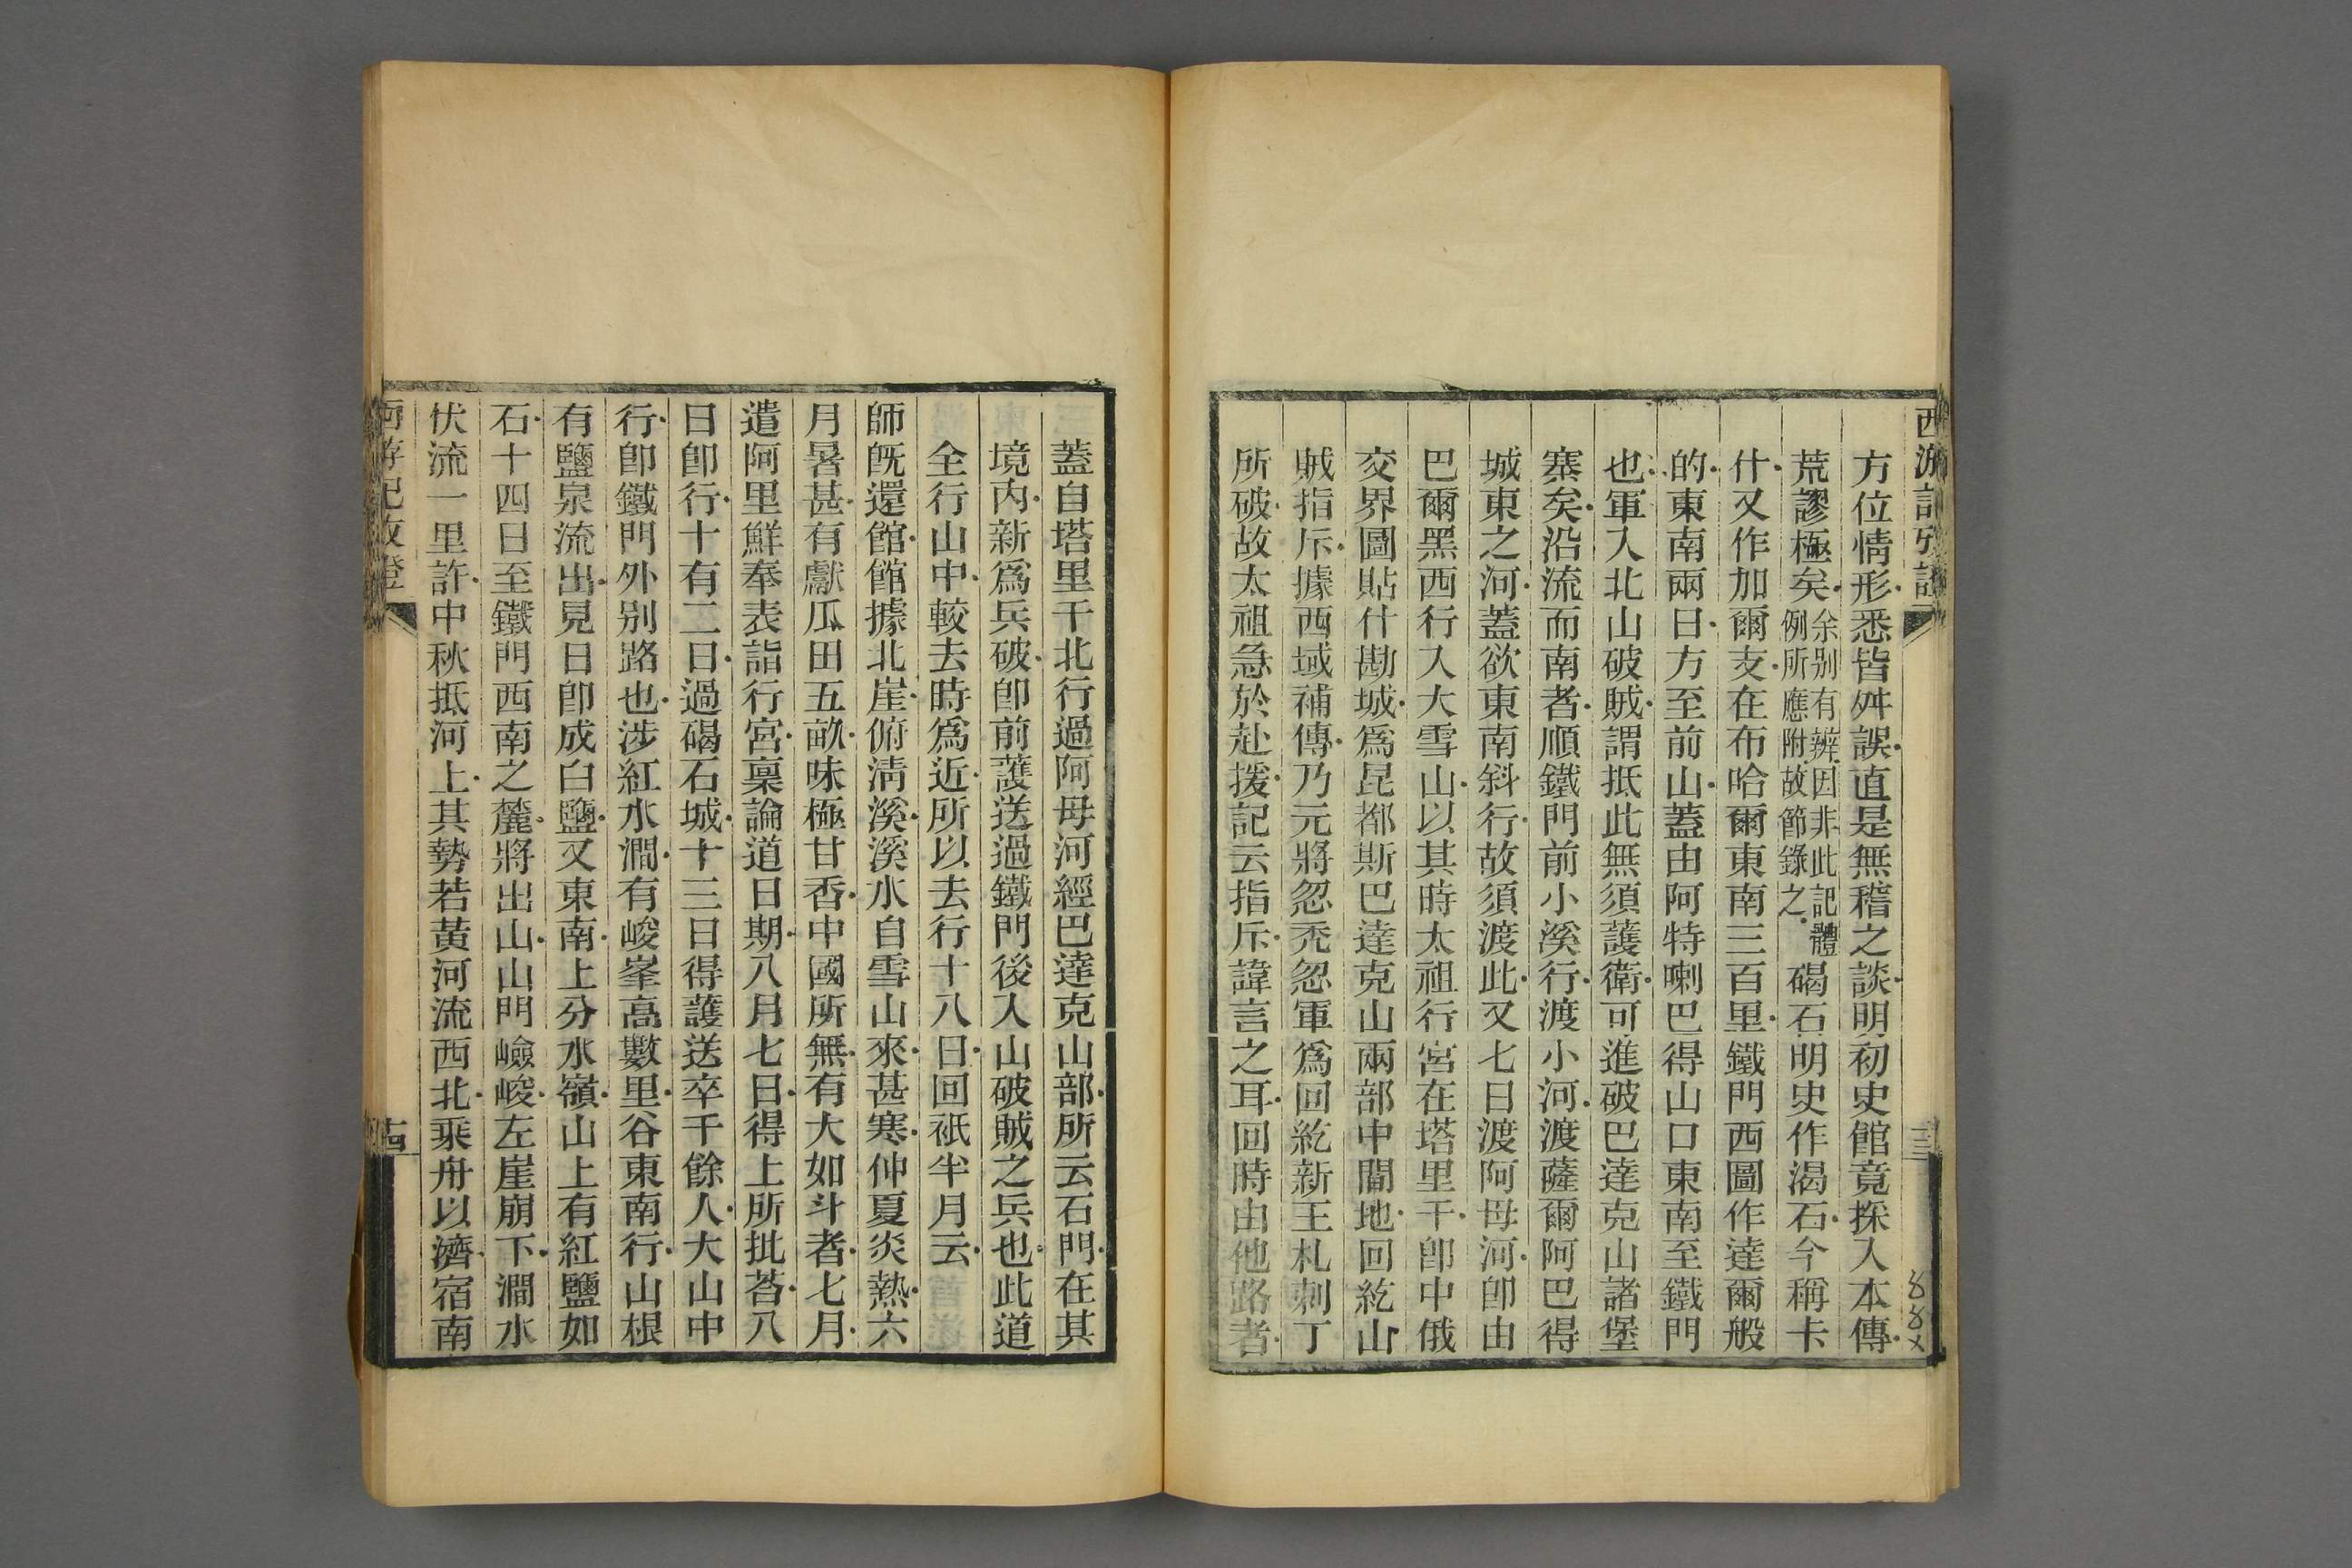 方位情形悉皆舛誤直是無稽之談明初史館竟採入本傳
荒謬極矣余别有辨因非此記體例所應附故節錄之碣石明史作渴石今稱卡
什又作加爾支在布哈爾東南三百里鐵門西圖作達爾般
的東南兩日方至前山蓋由阿特喇巴得山口東南至鐵門
也軍入北山破賊謂抵此無須護衛可進破巴達克山諸堡
寨矣沿流而南者順鐵門前小溪行渡小河渡薩爾阿巴得
城東之河蓋欲東南斜行故須渡此又七日渡阿母河卽由
巴爾黑西行入大雪山以其時太祖行宮在塔里干卽中俄
交界圖貼什勘城爲昆都斯巴達克山兩部中間地回紇山
賊指斥據西域補傳乃元將忽禿忽軍爲回紇新王札剌丁
所破故太祖急於赴援記云指斥諱言之耳回時由他路者
蓋自塔里干北行過阿母河經巴達克山部所云石門在其
境內新爲兵破卽前護送過鐵門後入山破賊之兵也此道
全行山中較去時爲近所以去行十八日回祇半月云
師旣還館館據北崖俯淸溪溪水自雪山來甚寒仲夏炎熱六
月暑甚有獻瓜田五畝味極甘香中國所無有大如斗者七月
遣阿里鮮奉表詣行宮稟論道日期八月七日得上所批荅八
日卽行十有二日過碣石城十三日得護送卒千餘人大山中
行卽鐵門外别路也涉紅水澗有峻峯高數里谷東南行山根
有鹽泉流出見日卽成白鹽又東南上分水嶺山上有紅鹽如
石十四日至鐵門西南之麓將出山山門嶮峻左崖崩下澗水
伏流一里許中秋抵河上其勢若黃河流西北乘舟以濟宿南